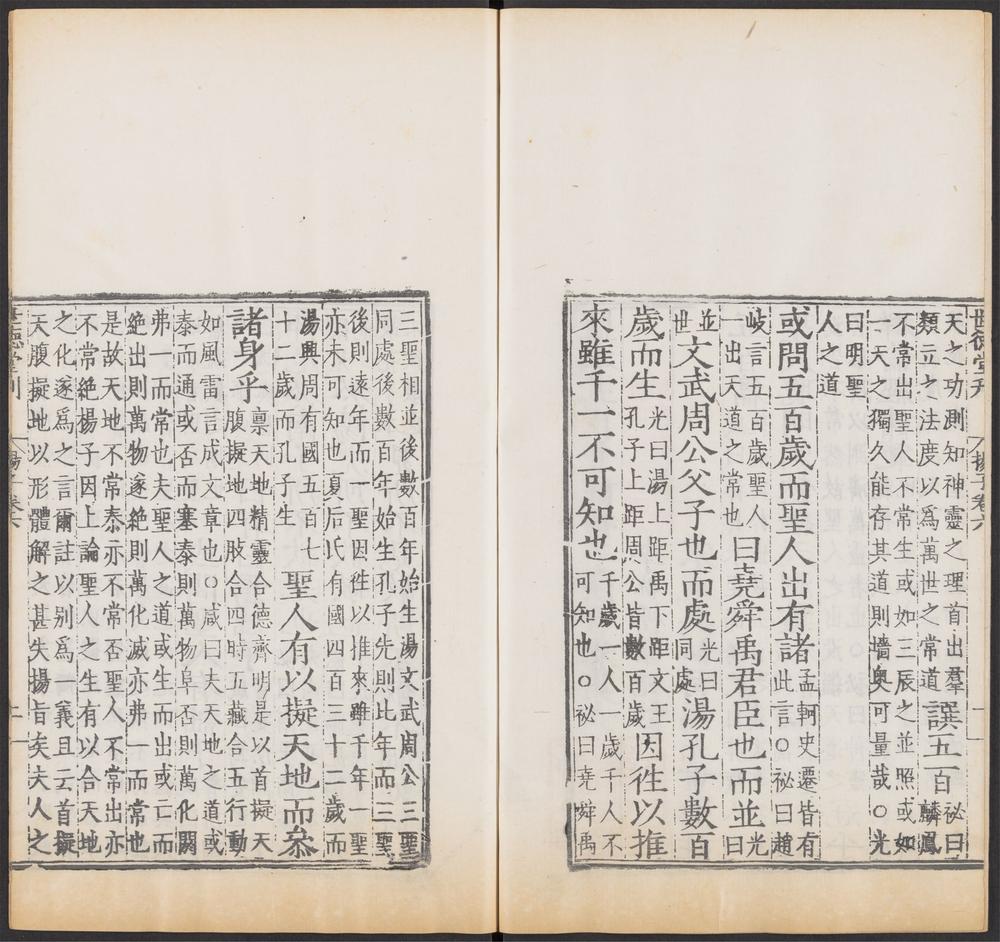 世德堂刊 揚子卷六 一
天之功測知神靈之理首出羣
類立之法度以爲萬世之常道
譔五百
祕曰
麟鳳
不常出聖人不常生或如三辰之並照或如
一天之獨久能存其道則墻奧可量哉○光
曰明聖
人之道
或問五百歲而聖人出有諸
孟軻史遷皆有
此言○祕曰趙
岐言五百歲聖人
一出天道之常也
曰堯舜禹君臣也而並
光
曰
並
世
文武周公父子也而處
光曰
同處
湯孔子數百
歲而生
光曰湯上距禹下距文王
孔子上距周公皆數百歲
因徃以推
來雖千一不可知也
千歲一人一歲千人不
可知也○祕曰堯舜禹
三聖相並後數百年始生湯文武周公三聖
同處後數百年始生孔子先則比年而三聖
後則遠年而一聖因徃以推來雖千年一聖
亦未可知也夏后氏有國四百三十二歲而
湯興周有國五百七
十二歲而孔子生
聖人有以擬天地而叅
諸身乎
稟天地精靈合德齊明是以首擬天
腹擬地四肢合四時五藏合五行動
如風雷言成文章也○咸曰夫天地之道或
泰而通或否而塞泰則萬物阜否則萬化閼
弗一而常也夫聖人之道或生而出或亡而
絶出則萬物遂絶則萬化滅亦弗一而常也
是故天地不常泰亦不常否聖人不常出亦
不常絶揚子因上論聖人之生有以合天地
之化遂爲之言爾註以别爲一義且云首擬
天腹擬地以形體解之甚失揚旨矣夫人之
世德堂刊 揚子卷六